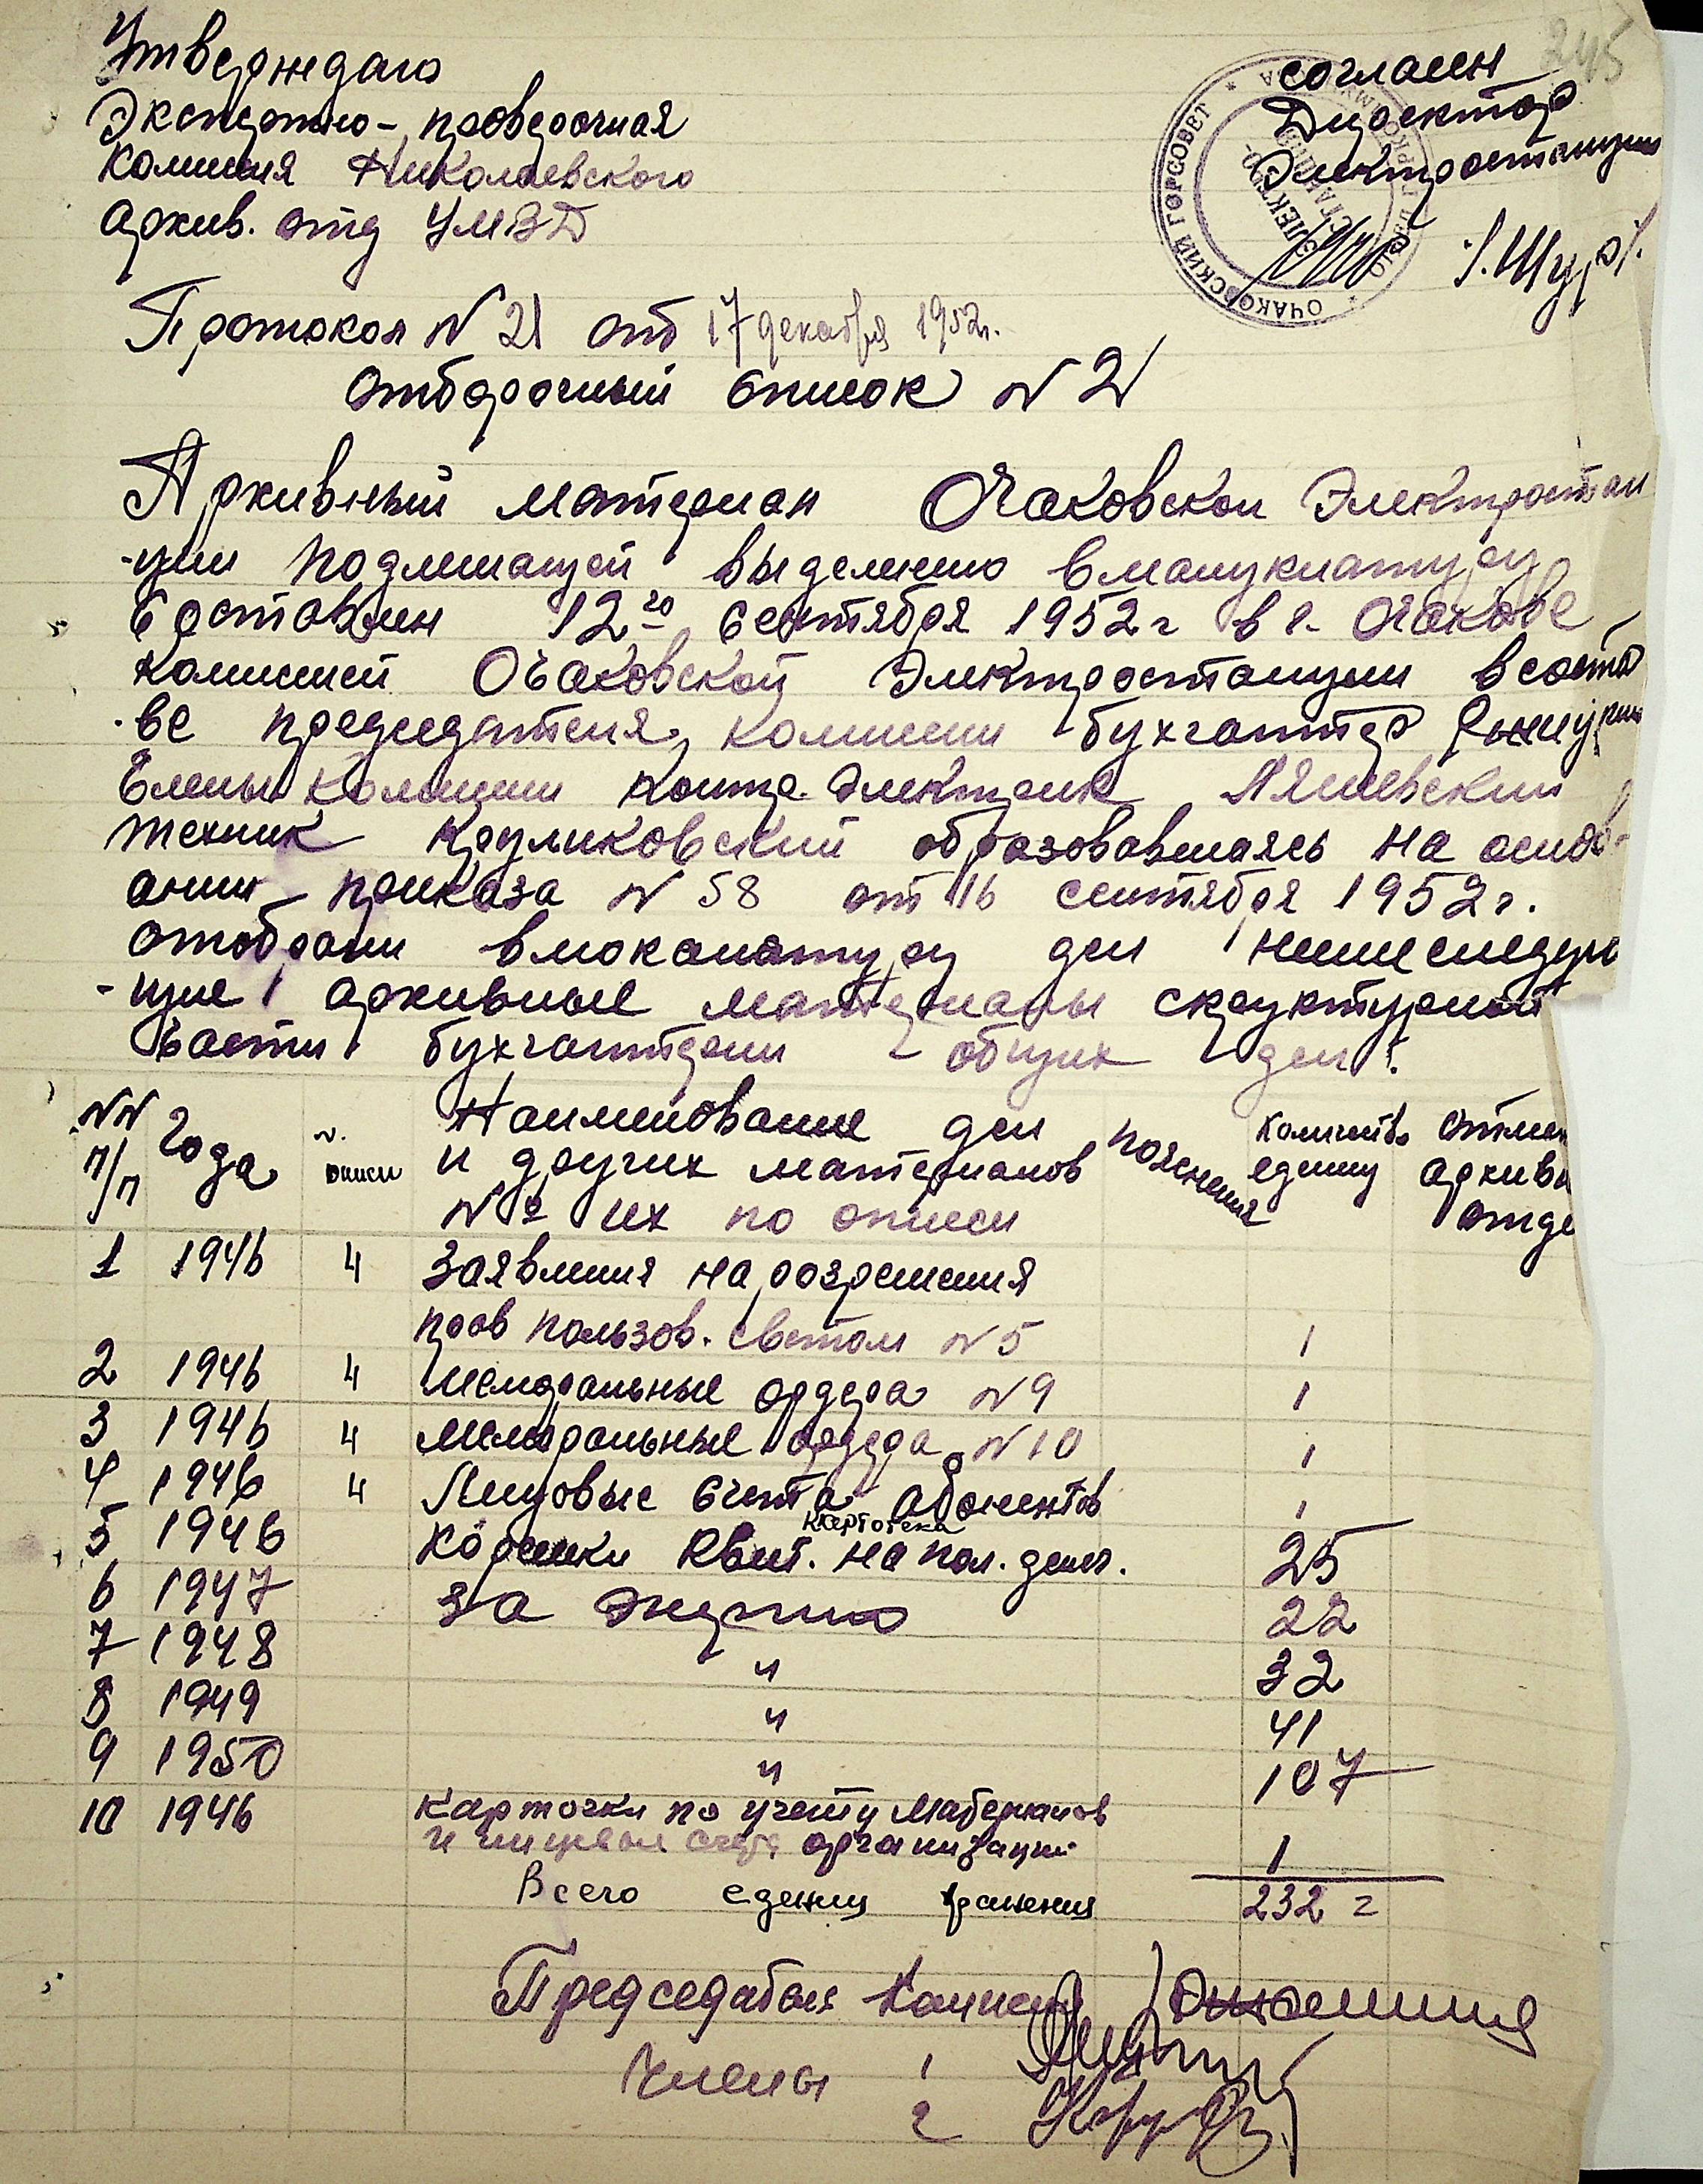 245
Утверждаю
Экспертно-проверочная
комиссия Николаевского
архив. отд УМВД
согласен
Директор
Электростанции
/.Щур/.
ОЧАКОВСКИЙ ГОРСОВЕТ
ЭЛЕКТРО-
СТАНЦИЯ
Протокол N 21 от 17 декабря 1952г.
Отборочный список N 2
Архивный материал Очаковской Электростан
-ции подлежащей выделению в макулатуру
Составлен 12го сентября 1952г в г. Очакове
комиссией Очаковской Электростанции в соста
-ве председателя комиссии бухгалтер
Члены комиссии контр. электрик Ляшевский
техник Круликовский образовавшаяся на основ-
ании приказа N 58 от 16 сентября 1952г.
отобрали в мокалатуру дел нижеследую
-щие архивные материалы скруктурной
части бухгалтерии общих дел.
NN п/п
Года
N. описи
Наименование дел
и других материалов
N№ их по описи
пояснения
Количество единиц
Отмет архивн отде
1 1946 4 Заявления на розрешения
прав пользов. светом N 5 1
2 1946 4 Мемориальные ордера N 9 1
3 1946 4 Мемориальные ордера N 10 1
4 1946 4 Лицовые счета абонентов 1
картотека
5 1946 Корешки квит. на пол. денег. 25
6 1947 за энергию 22
7 1948 " 32
8 1949 " 41
9 1950 " 107
10 1946 карточки по учету материалов
и лицевые счета организаций 1
Всего единиц хранения 232
Председатель комиссии
Члены 1
2